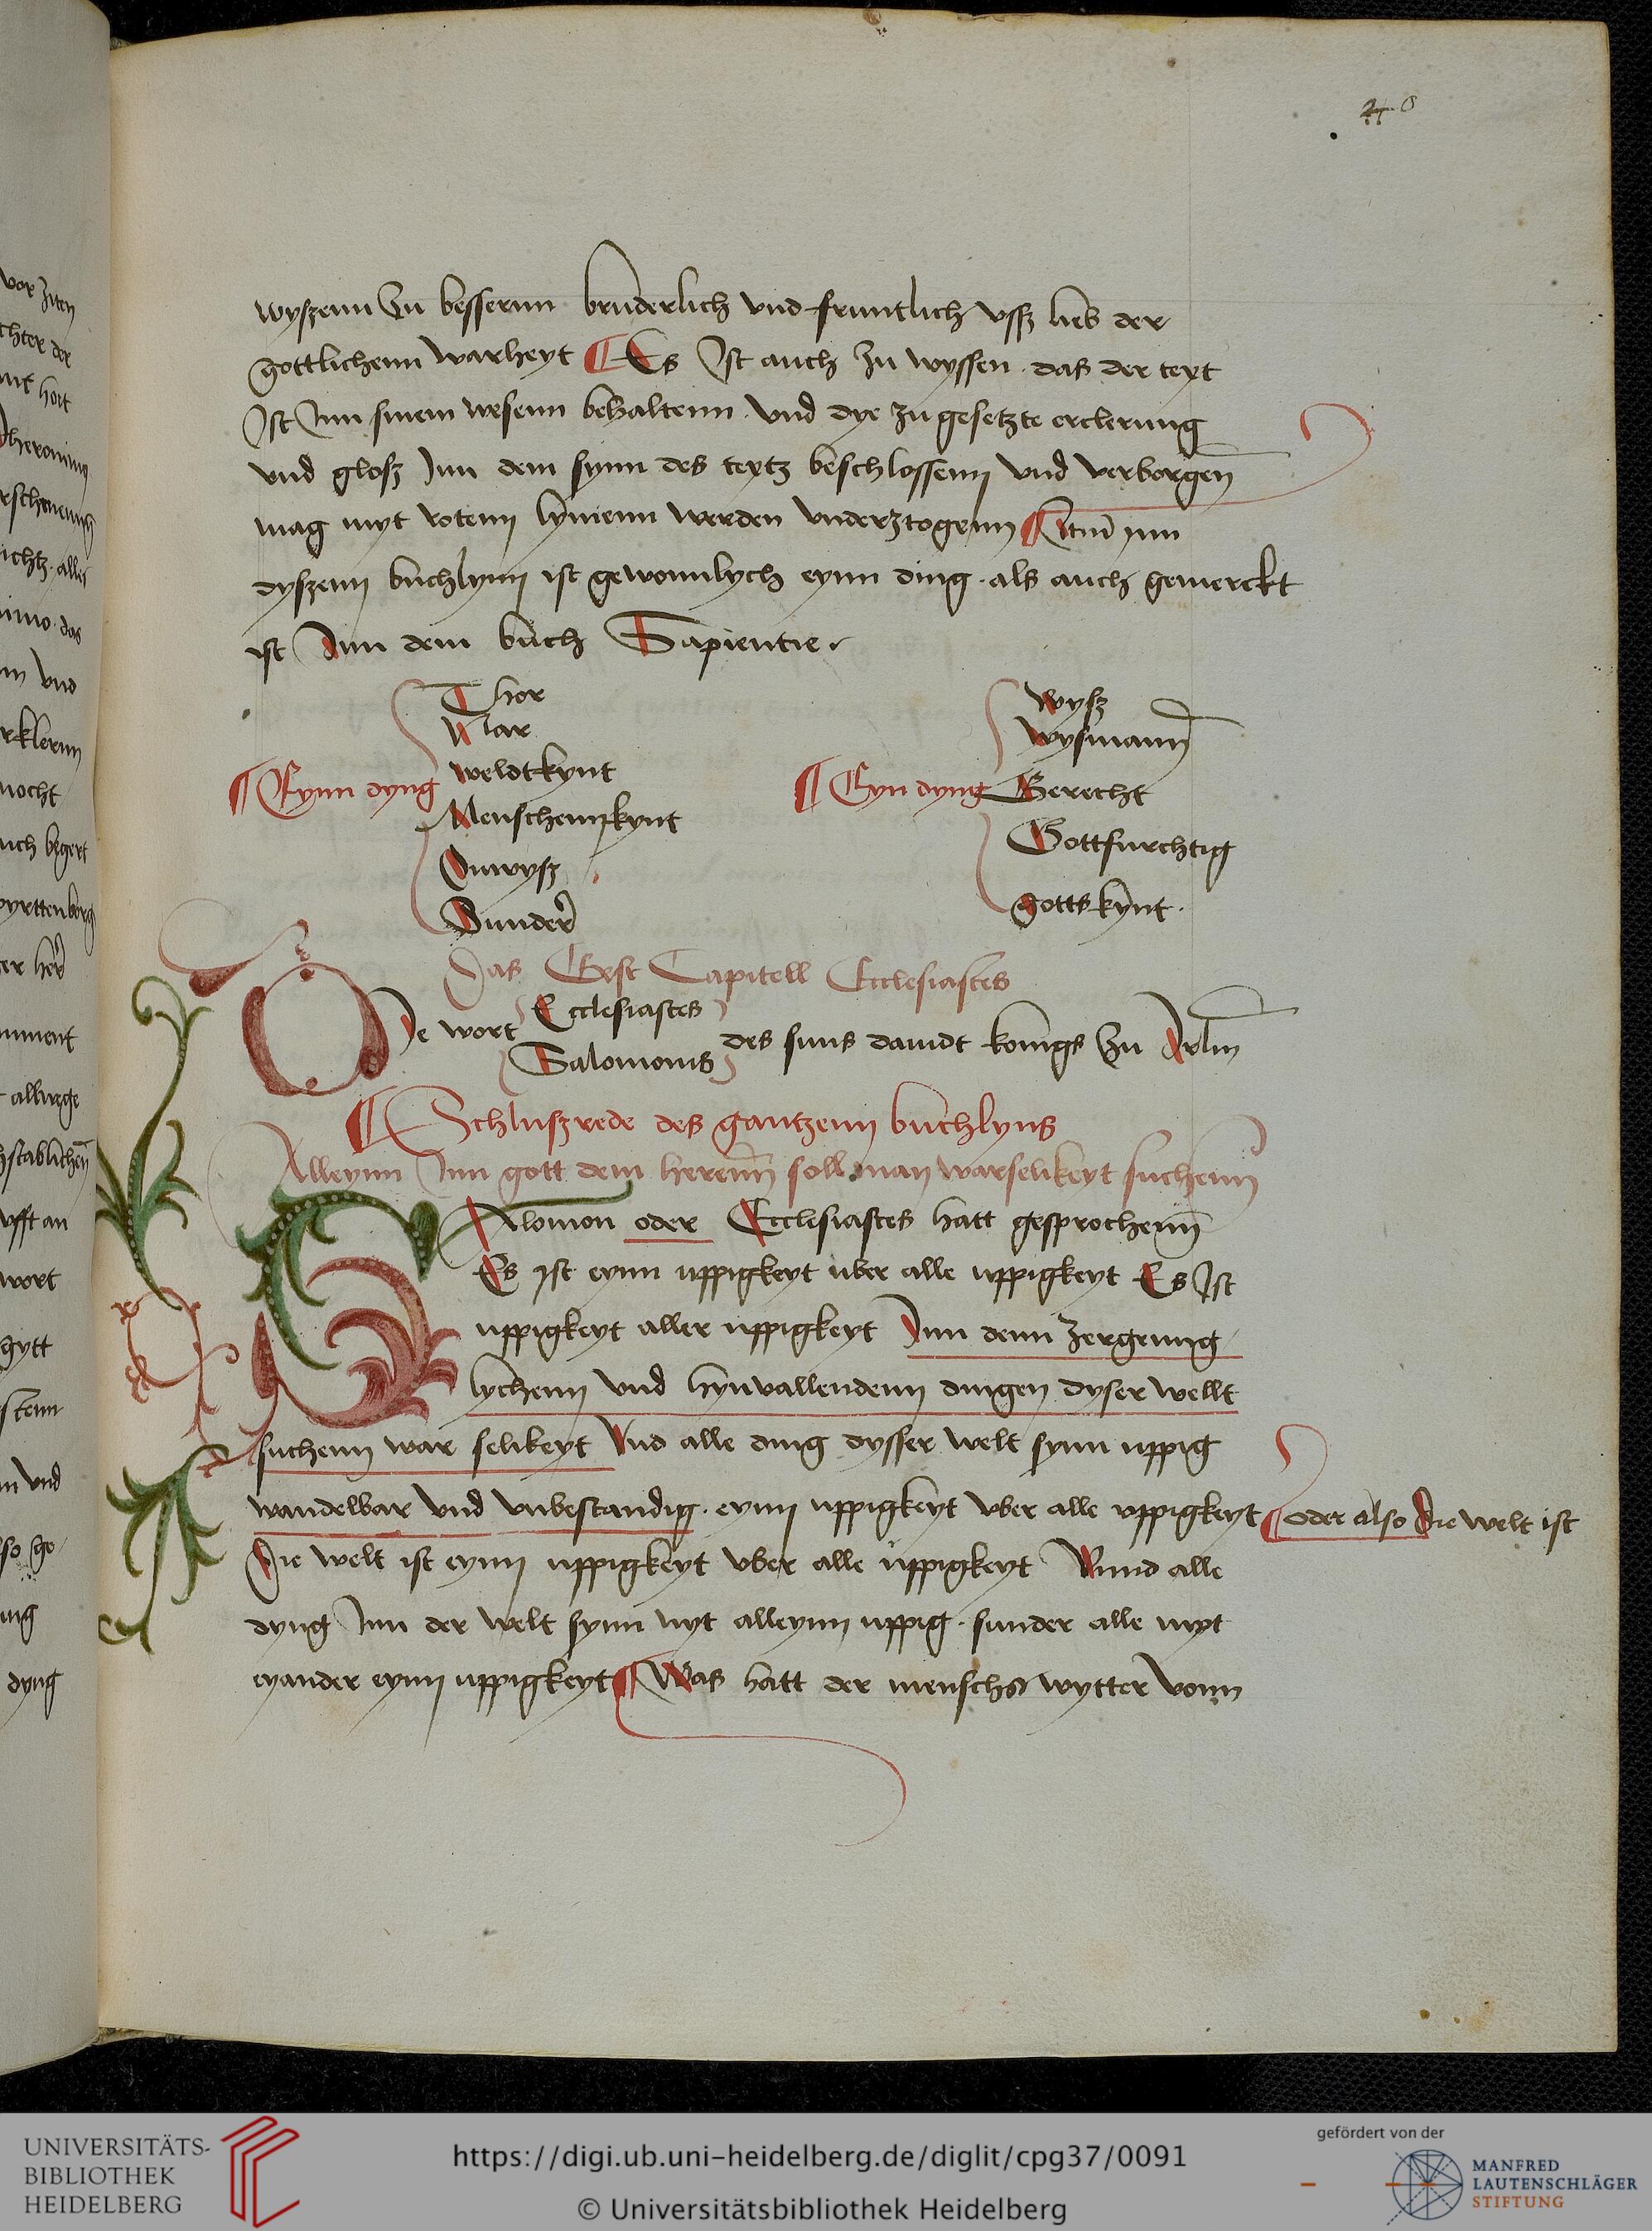 wyszenn zu bessernn bruderlich vnd fruntlich vsz lieb der
gottlichenn warheyt ¶ Es Ist auch zu wyssen · das der text
Ist Inn sinem wesenn behaltenn · vnd dye zu gesetzte erclerung
vnd glosz Inn dem synn des textz beschlossenn vnd verborgen̄
mag myt rotenn lynienn werden vnderztogenn ¶ Inn
dyszenn buchlynn ist gewonnlych eynn ding · als auch gemerckt
ist Inn dem buch Sapientie ·
Thor
Nar
¶ Eynn dyng weldtkynt
Menschennkynt
Vnwysz
Sunder
wysz
wysmann
¶ Eyn dyng Gerecht
Gottfurchtig
gottskynt ·
Das Erst Capitell Ecclesiastes
DIe wort Ecclesiastes Salomonis des suns dauidt konigs zu Irlm̄
¶ Schluszrede des gantzenn buchlyns
Alleynn Inn gott dem herenn̄ soll man warselikeyt suchenn
SAlomon oder Ecclesiastes hatt gesprochenn̄
Es ist eynn uppigkeyt uber alle uppigkeyt Es Ist
uppigkeyt aller uppigkeyt Inn denn zergeng
lychenn vnd hynvallendenn dingen dyser wellt
suchenn war selikeyt Vnd alle ding dysser welt synn uppig
wandelbar vnd vnbestandig · eynn uppigkeyt vber alle vppigkeyt ¶ oder also Die welt ist
Die welt ist eynn uppigkeyt vber alle uppigkeyt Vnnd alle
dyng Inn der welt synn nyt alleynn uppig · sunder alle myt
eyander eynn uppigkeyt ¶ Was hatt der mensch wytter vonn
UNIVERSITÄTS-
BIBLIOTHEK
HEIDELBERG
https://digi.ub.uni-heidelberg.de/diglit/cpg37/0091
© Universitätsbibliothek Heidelberg
gefördert von der
MANFRED
LAUTENSCHLÄGER
STIFTUNG